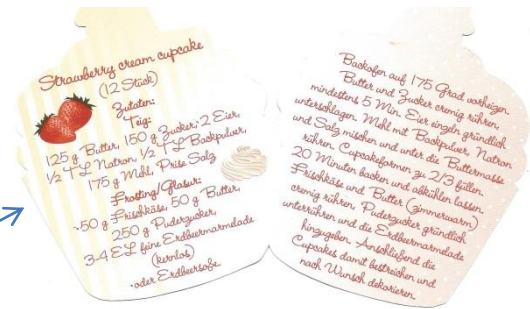 Strawberry cream cupcake
(12 Stück)
Zutaten:
Teig:
125 g Butter, 150 g Zucker, 2 Eier
½ TL Natron, ½ TL Backpulver,
175 g Mehl, Prise Salz
Frosting/Glasur:
50 g Frischkäse, 50 g Butter,
250 g Puderzucker,
3-4 EL feine Erdbeermarmelade
(kernlos)
oder Erdbeersoße
Backofen auf 175 Grad vorheizen.
Butter und Zucker cremig rühren,
mindestens 5 Min. Eier einzeln gründlich
unterschlagen. Mehl mit Backpulver, Natron
und Salz mischen und unter die Buttermasse
rühren. Cupcakeformen zu 2/3 füllen.
20 Minuten backen und abkühlen lassen.
Frischkäse und Butter (zimmerwarm)
cremig rühren, Puderzucker gründlich
unterrühren und die Erdbeermarmelade
hinzugeben. Anschließend die
Cupcakes damit bestreichen und
nach Wunsch dekorieren.